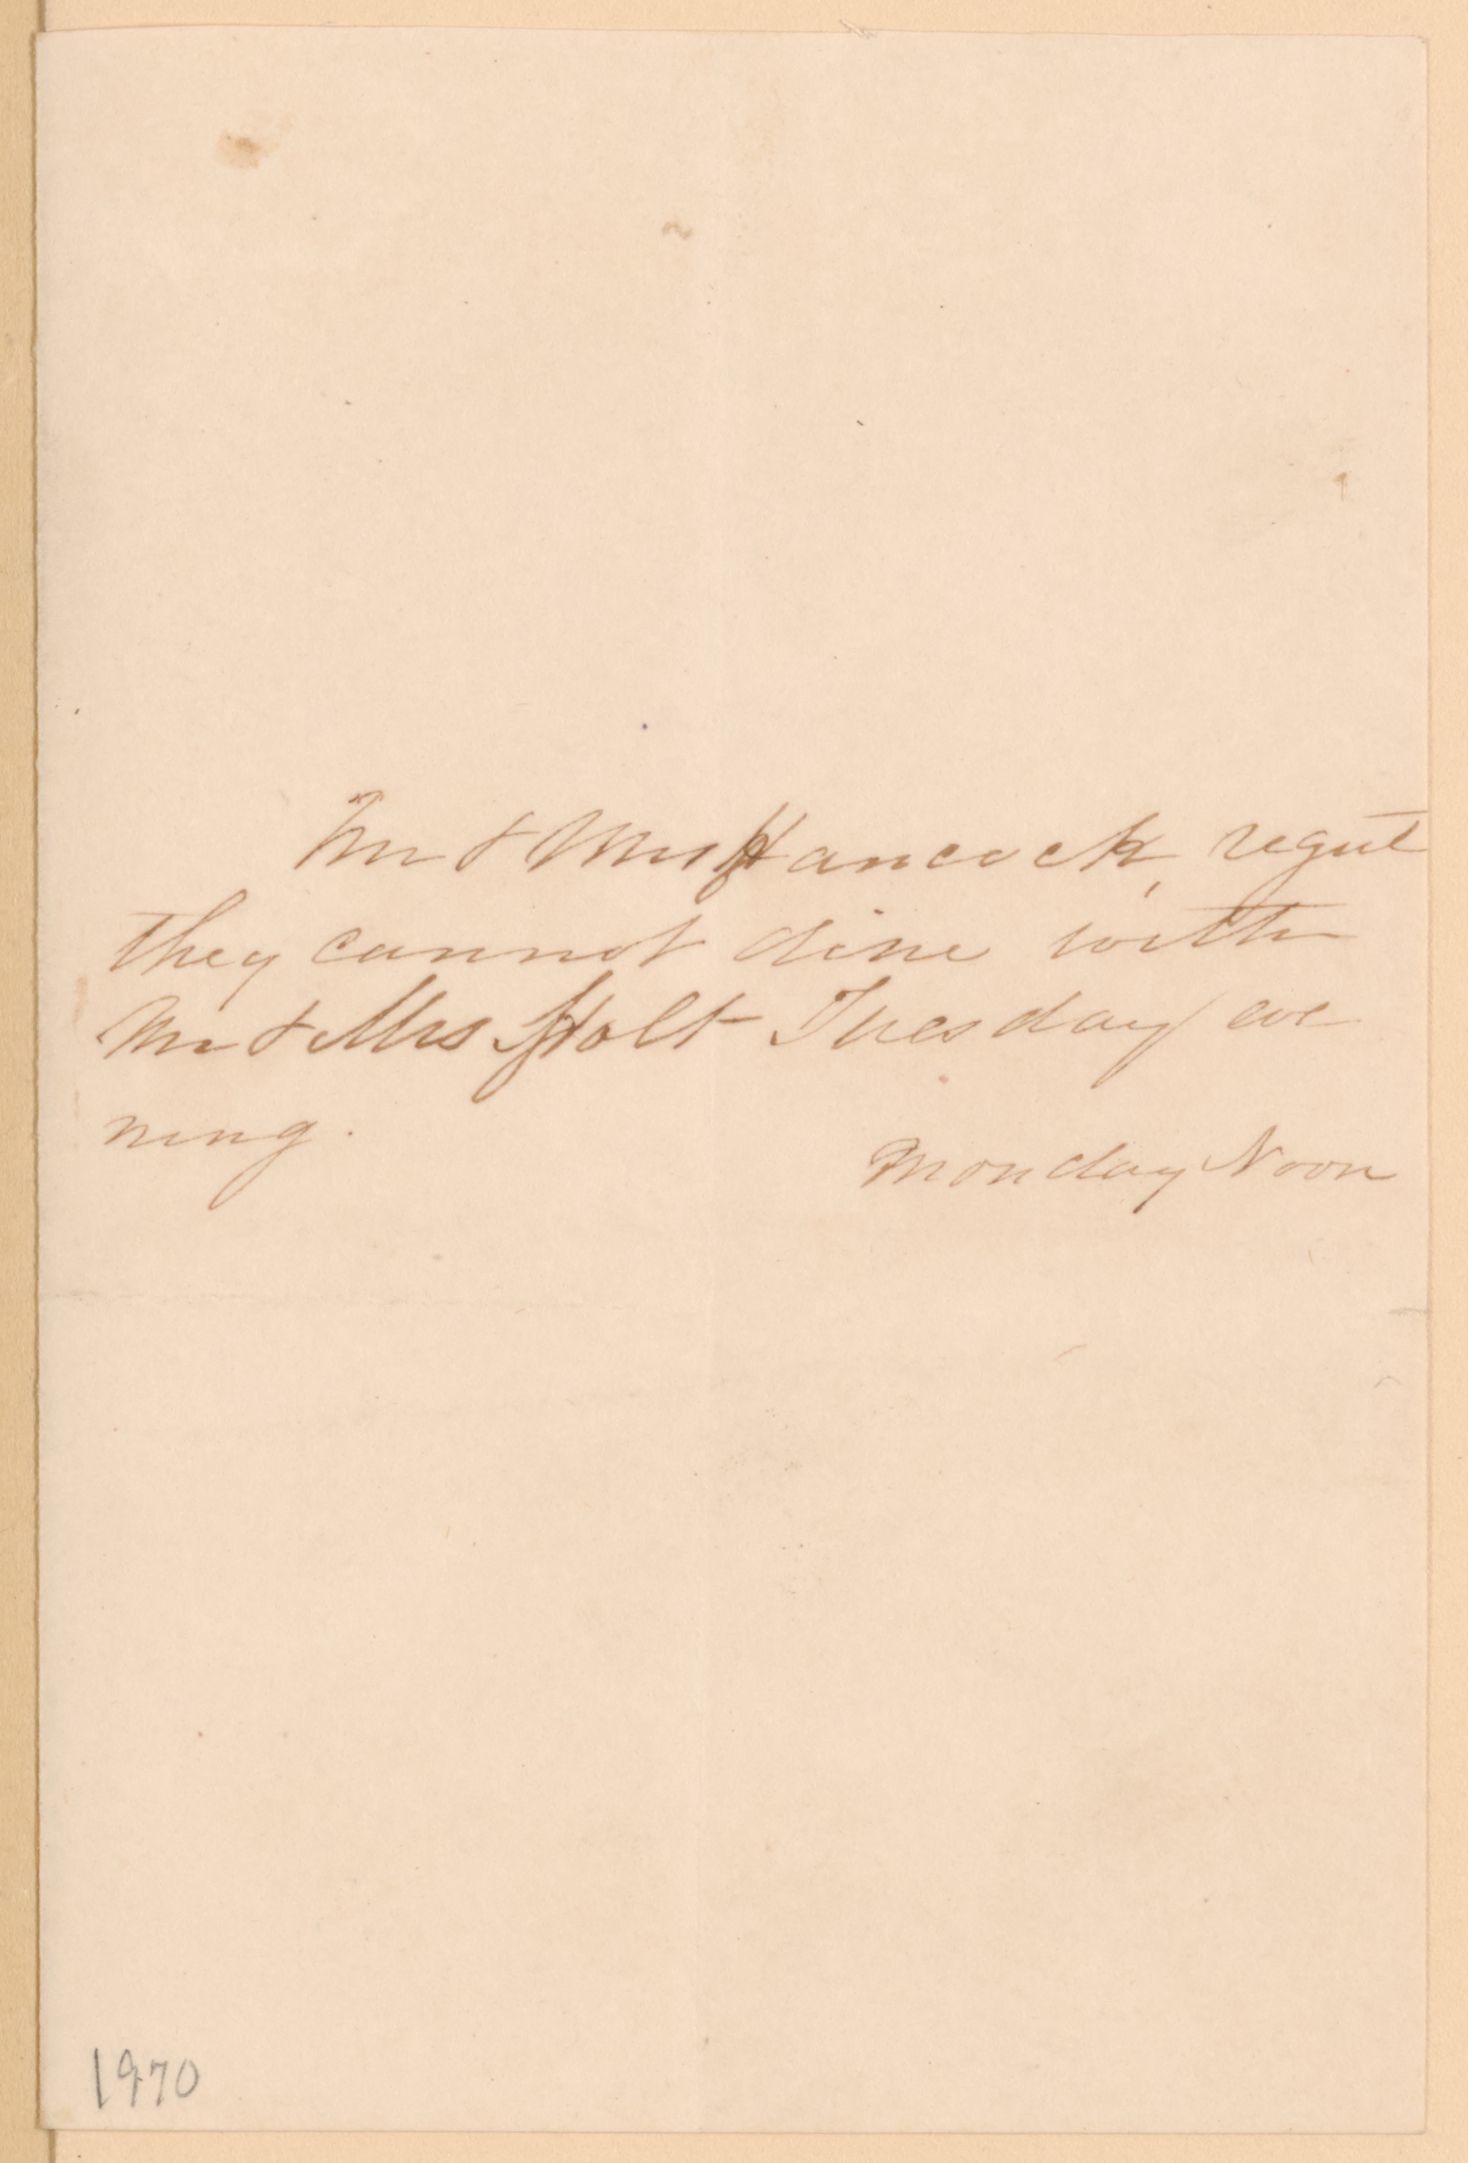 Mr & Mrs Hancock, regret
they cannot dine with
Mr & Mrs Holt Tuesday eve
ning.
Monday Noon
1970